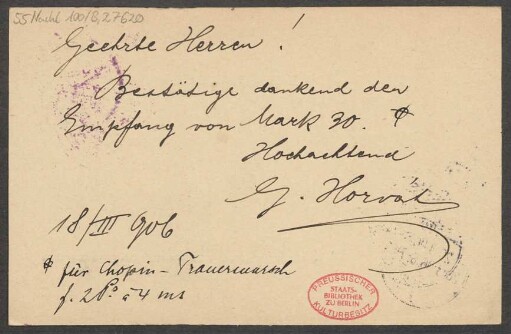 55 Nachl 100/B, 27620
Geehrte Herren!
Bestätige dankend den
Empfang von Mark 30. ¢
Hochachtend
G. Horvat
18/III 906
¢ für Chopin-Trauermarsch
f. 2 Po à 4 ms
PREUSSISCHER
STAATS-
BIBLIOTHEK
ZU BERLIN
KULTURBESITZ